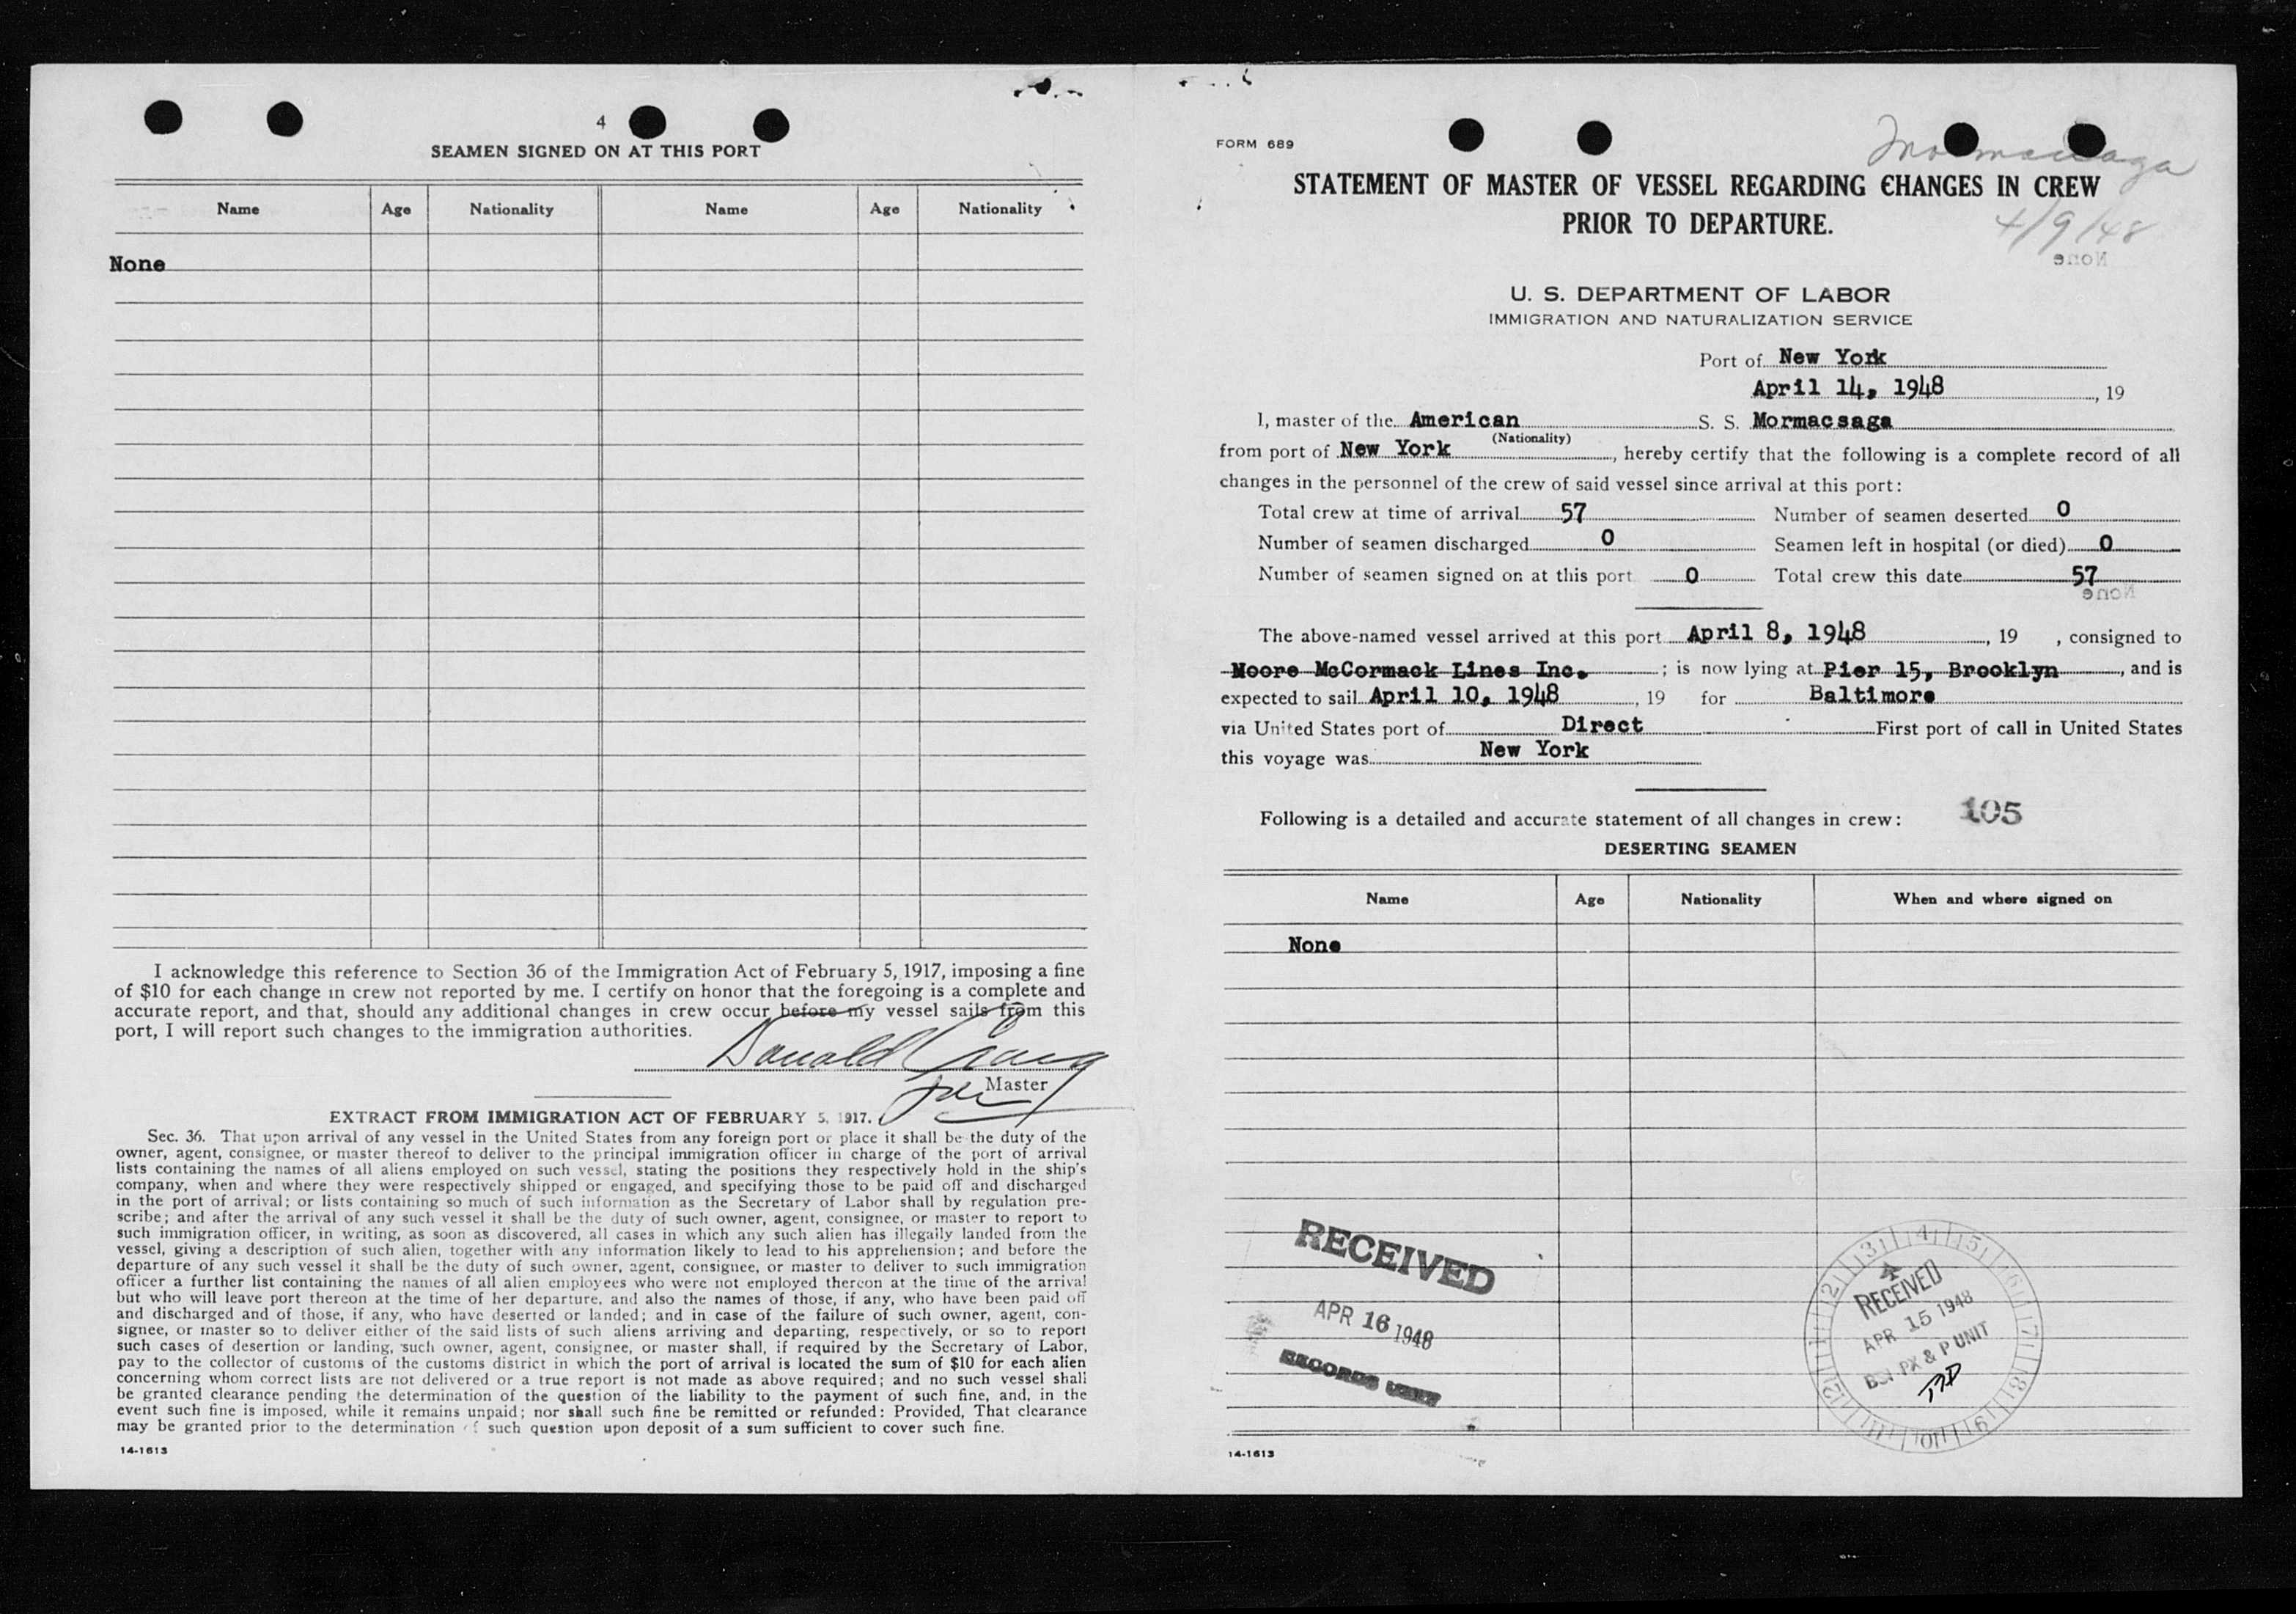 4
SEAMEN SIGNED ON AT THIS PORT
Name Age Nationality Name Age Nationality
None
I acknowledge this reference to Section 36 of the Immigration Act of February 5, 1917, imposing a fine
of $10 for each change in crew not reported by me. I certify on honor that the foregoing is a complete and
accurate report, and that, should any additional changes in crew occur before my vessel sails from this
port, I will report such changes to the immigration authorities.
Donald Craig
Master
EXTRACT FROM IMMIGRATION ACT OF FEBRUARY 5, 1917.
Sec. 36. That upon arrival of any vessel in the United States from any foreign port or place it shall be the duty of the
owner, agent, consignee, or master thereof to deliver to the principal immigration officer in charge of the port of arrival
lists containing the names of all aliens employed on such vessel, stating the positions they respectively hold in the ship's
company, when and where they were respectively shipped or engaged, and specifying those to be paid off and discharged
in the port of arrival; or lists containing so much of such information as the Secretary of Labor shall by regulation pre-
scribe; and after the arrival of any such vessel it shall be the duty of such owner, agent, consignee, or master to report to
such immigration officer, in writing, as soon as discovered, all cases in which any such alien has illegally landed from the
vessel, giving a description of such alien, together with any information likely to lead to his apprehension; and before the
departure of any such vessel it shall be the duty of such owner, agent, consignee, or master to deliver to such immigration
officer a further list containing the names of all alien employees who were not employed thereon at the time of the arrival
but who will leave port thereon at the time of her departure, and also the names of those, if any, who have been paid off
and discharged and of those, if any, who have deserted or landed; and in case of the failure of such owner, agent, con-
signee, or master so to deliver either of the said lists of such aliens arriving and departing, respectively, or so to report
such cases of desertion or landing, such owner, agent, consignee, or master shall, if required by the Secretary of Labor,
pay to the collector of customs of the customs district in which the port of arrival is located the sum of $10 for each alien
concerning whom correct lists are not delivered or a true report is not made as above required; and no such vessel shall
be granted clearance pending the determination of the question of the liability to the payment of such fine, and, in the
event such fine is imposed, while it remains unpaid; nor shall such fine be remitted or refunded: Provided, That clearance
may be granted prior to the determination of such question upon deposit of a sum sufficient to cover such fine.
14-1613
FORM 689
Mormacsaga
STATEMENT OF MASTER OF VESSEL REGARDING CHANGES IN CREW
PRIOR TO DEPARTURE.
4/9/48
None
U. S. DEPARTMENT OF LABOR
IMMIGRATION AND NATURALIZATION SERVICE
Port of New York
April 14, 1948, 19
I, master of the American S. S. Mormacsaga
(Nationality)
from port of New York, hereby certify that the following is a complete record of all
changes in the personnel of the crew of said vessel since arrival at this port:
Total crew at time of arrival 57 Number of seamen deserted 0
Number of seamen discharged 0 Seamen left in hospital (or died) 0
Number of seamen signed on at this port 0 Total crew this date 57
None
The above-named vessel arrived at this port April 8, 1948, 19 , consigned to
Moore McCormack Lines Inc. ; is now lying at Pier 15, Brooklyn, and is
expected to sail April 10, 1948, 19 for Baltimore
via United States port of Direct First port of call in United States
this voyage was New York
Following is a detailed and accurate statement of all changes in crew: 105
DESERTING SEAMEN
Name Age Nationality When and where signed on
None
RECEIVED
APR 16 1948
RECORDS UNIT
1 2 3 4 5 6 7 8 9 10 11 12
RECEIVED
APR 15 1948
BSI PX & P UNIT
14-1613